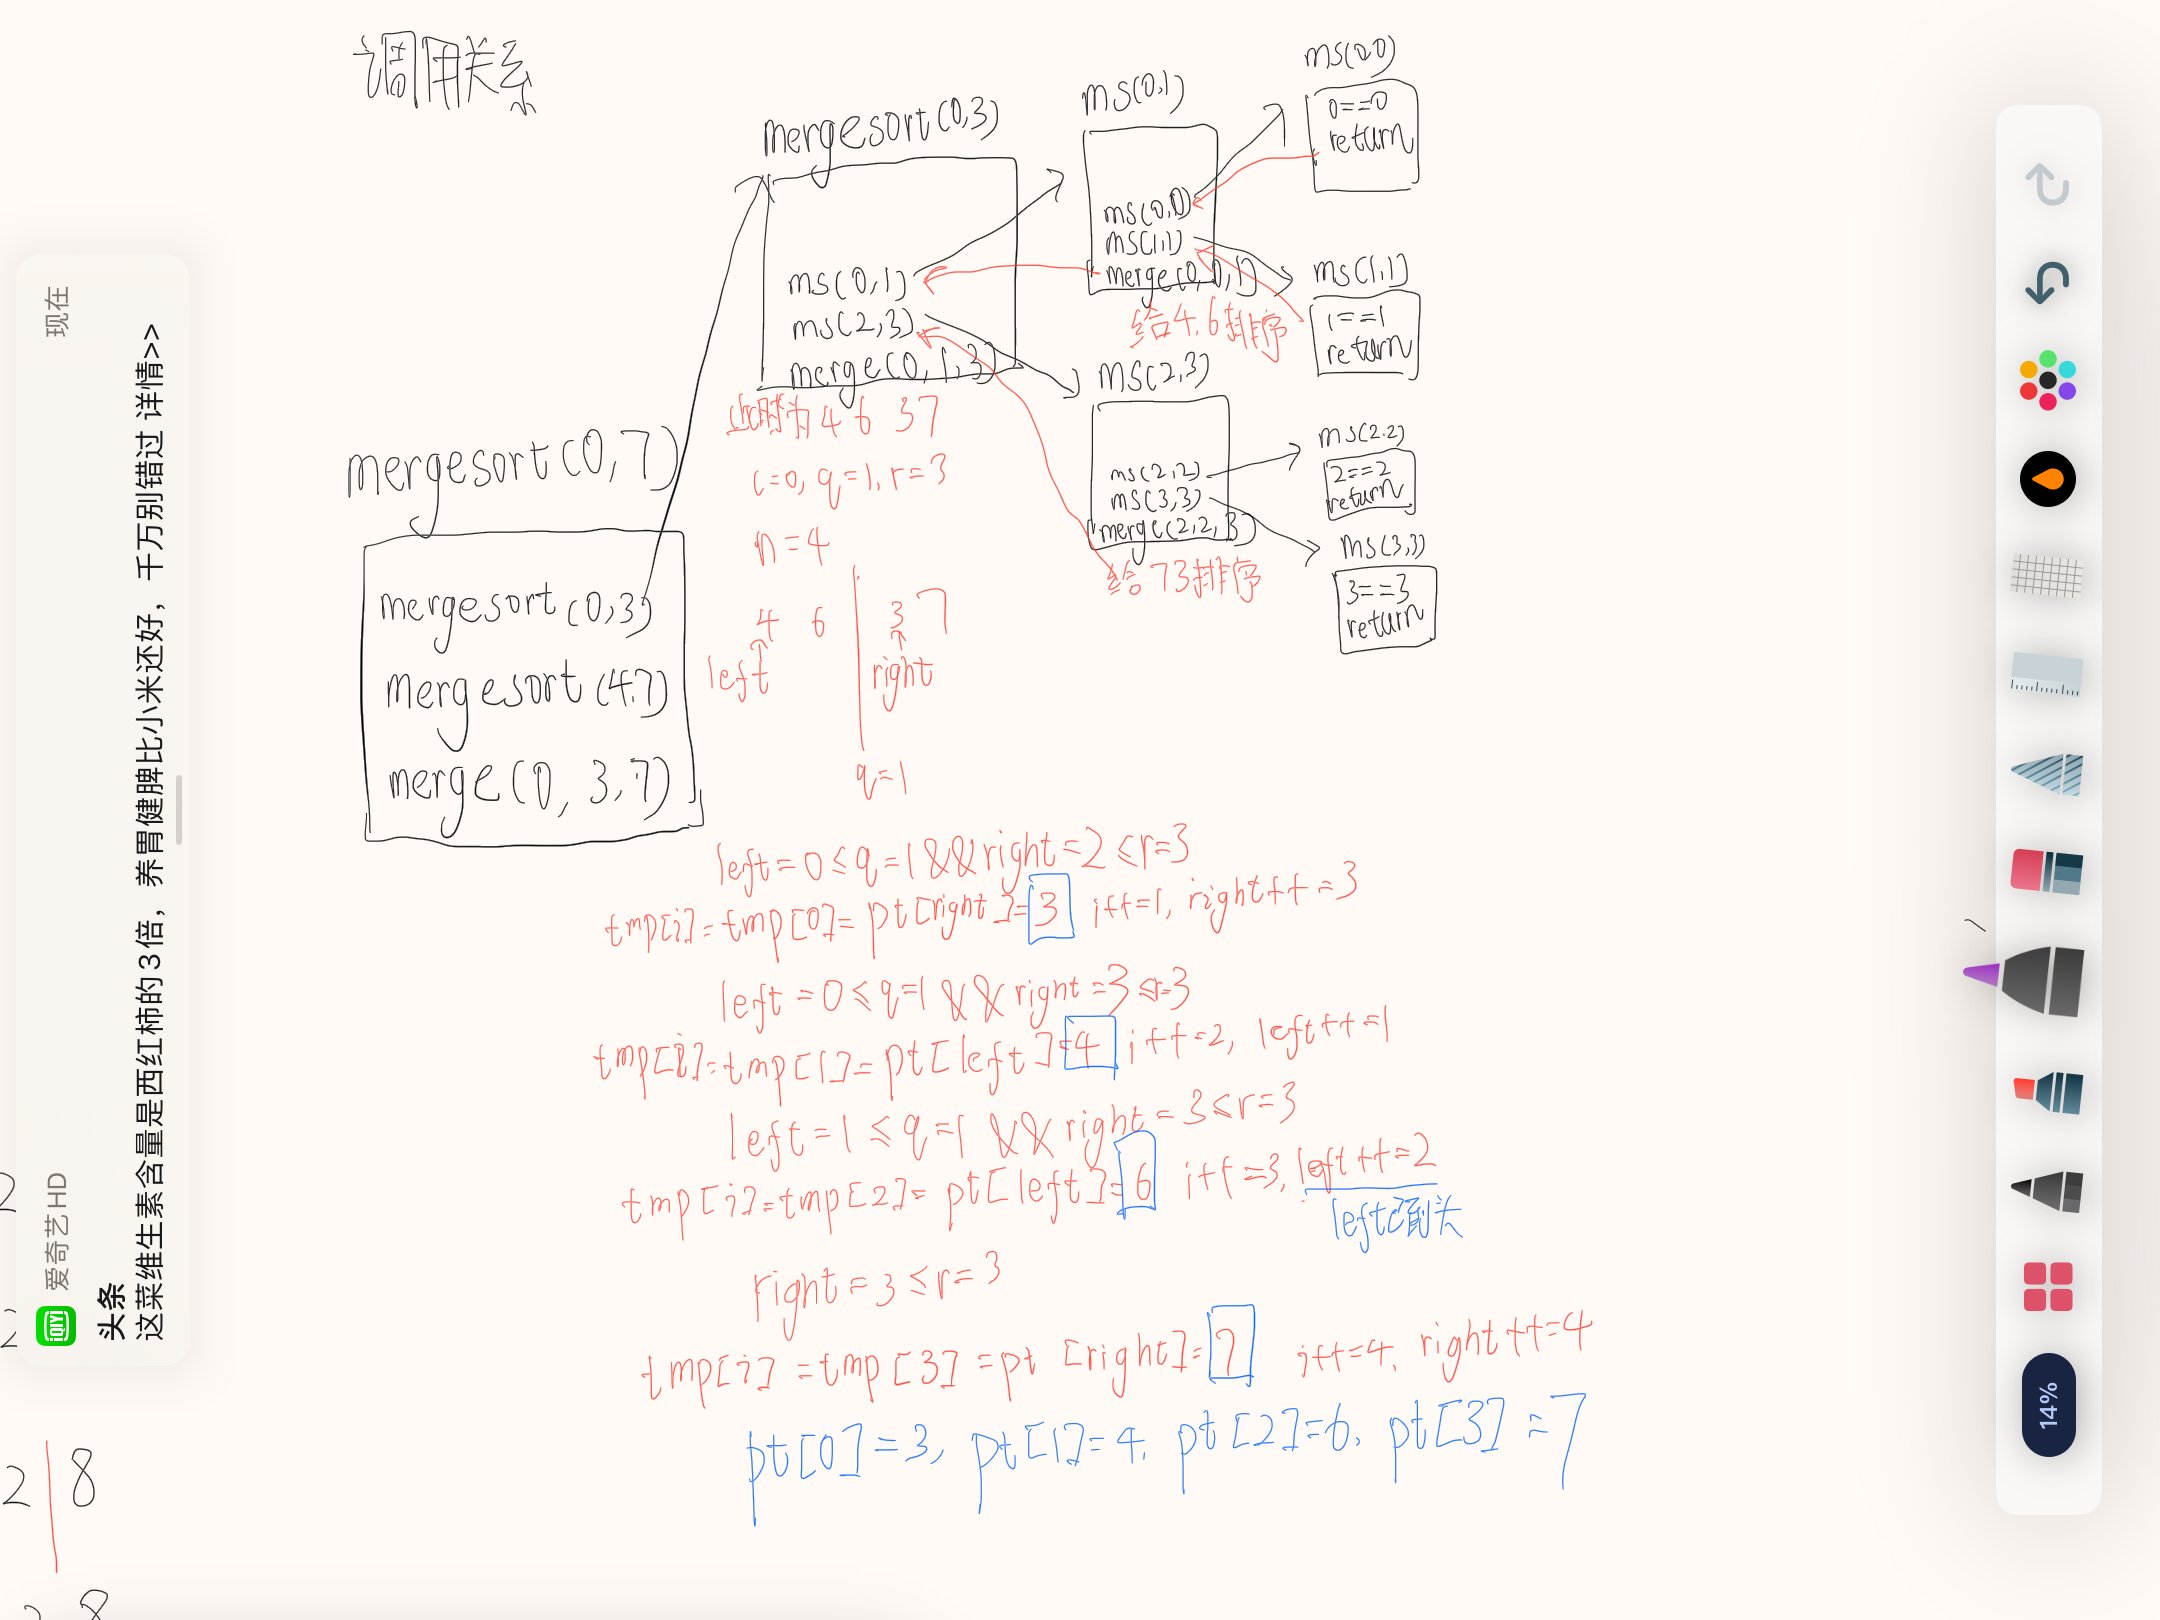 调用关系
mergesort(0,7)
mergesort(0,3)
mergesort(4.7)
merge(0,3,7)
mergesort(0,3)
ms(0,1)
ms(2,3)
merge(0,1,3)
此时为4 6 3 7
l=0, q=1, r=3
n=4
4 6 3 7
left right
q=1
ms(0,1)
ms(0,0)
ms(1,1)
merge(0,0,1)
给4.6排序
ms(0,0)
0==0
return
ms(1,1)
1==1
return
ms(2,3)
ms(2,2)
ms(3,3)
merge(2,2,3)
给73排序
ms(2.2)
2==2
return
ms(3,3)
3==3
return
left=0≤q=1&&right=2≤r=3
tmp[i]=tmp[0]=pt[right]=3 i++=1, right++=3
left=0≤q=1&&right=3≤r=3
tmp[i]=tmp[1]=pt[left]=4 i++=2, left++=1
left=1≤q=1&&right=3≤r=3
tmp[i]=tmp[2]=pt[left]=6 i++=3, left++=2
left已到头
right=3≤r=3
tmp[i]=tmp[3]=pt[right]=7 i++=4, right++=4
pt[0]=3, pt[1]=4, pt[2]=6, pt[3]=7
爱奇艺HD 现在
头条
这菜维生素含量是西红柿的3倍，养胃健脾比小米还好，千万别错过 详情>>
iQIYI
2 8
8
14%